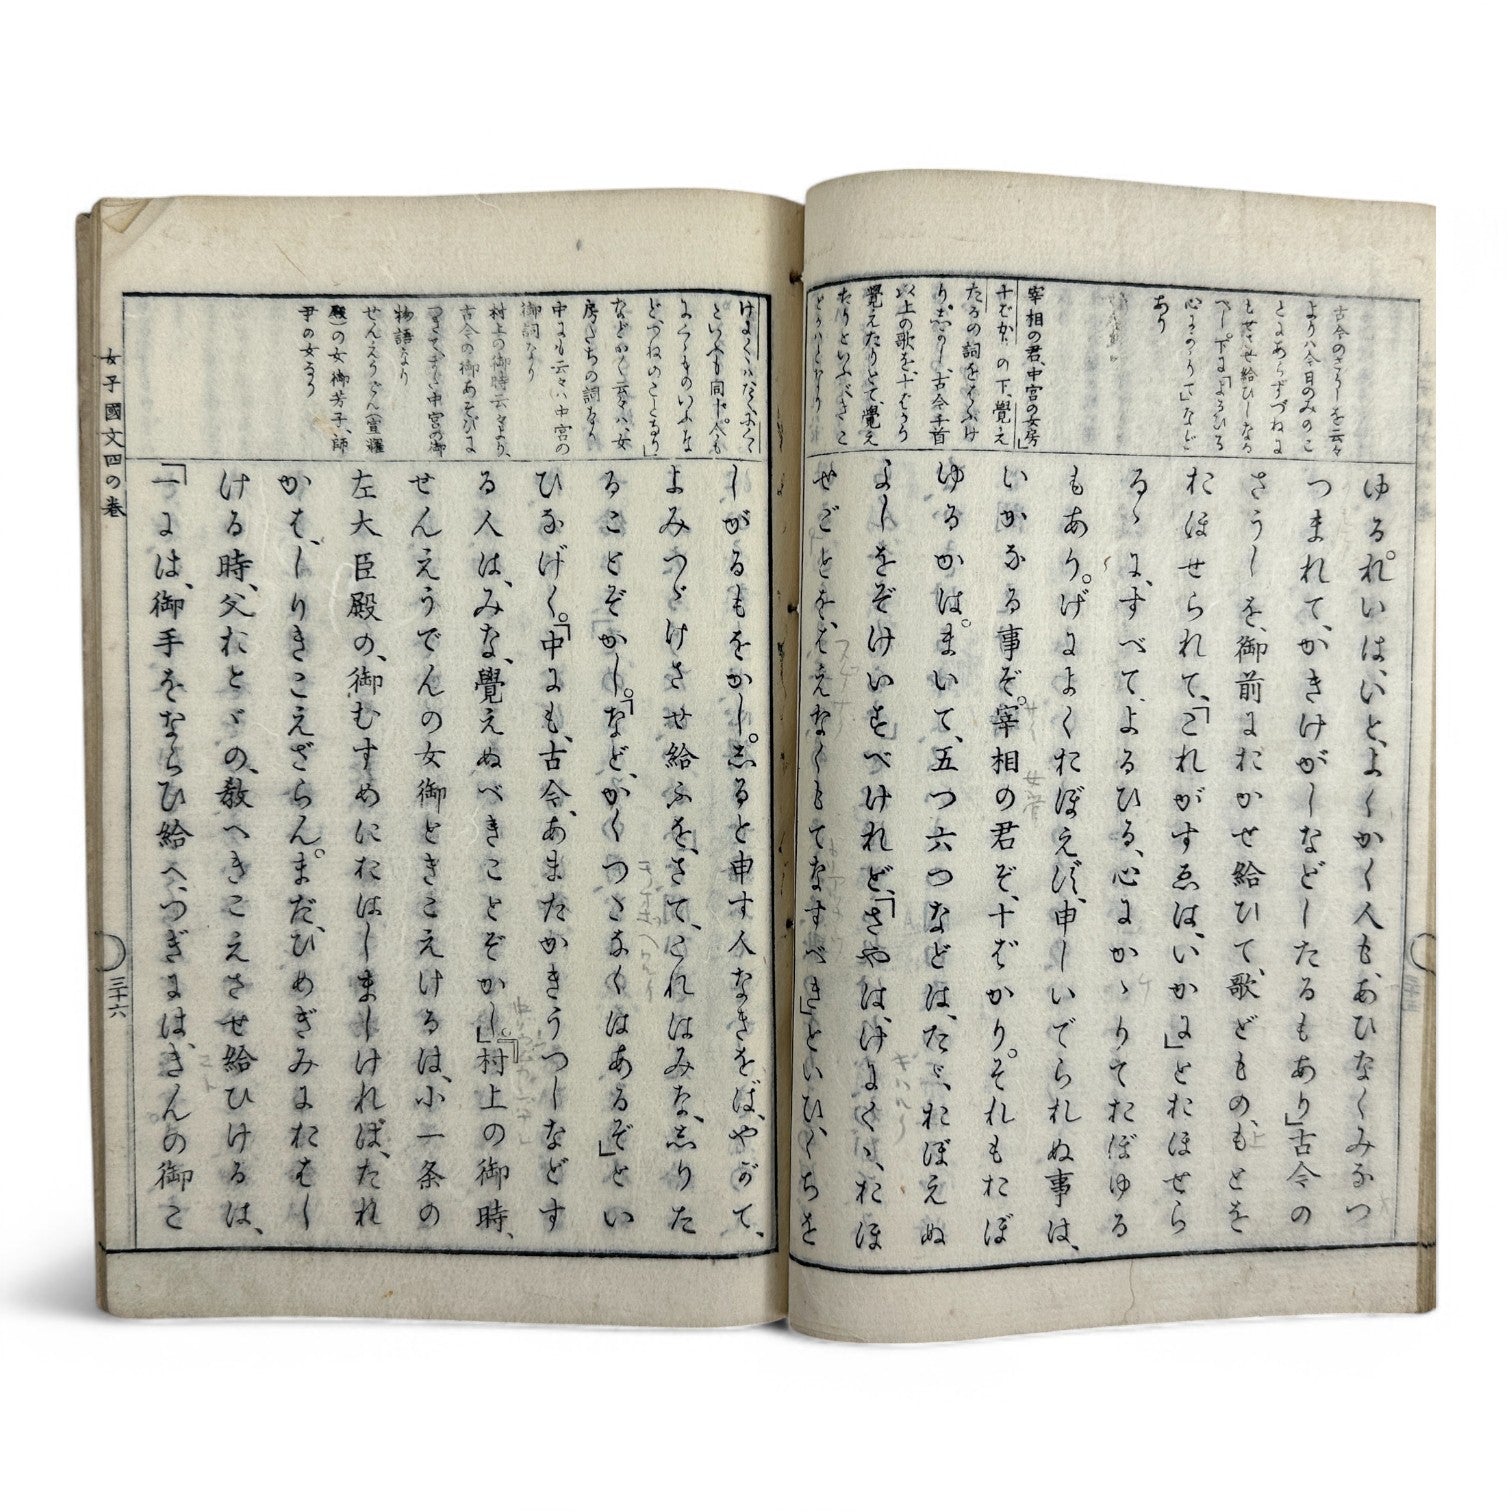 古今のさうしを云々
よりハ今日のみのこ
とにあらずつねに
もせさせ給ひしなる
べし。下に「よるひる
心にかゝり」など
あり
宰相の君、中宮の女房
十ばかりの下、覺え
たるの詞をはぶけ
り、しかし、古今千首
以上の歌を、十ばかり
覺えたりとて、覺え
たりといふべきこ
とかハとなり
ゆる。れいは、いと、よくかく人も、あひなくみなつ
つまれて、かきけがしなどしたるもあり」古今の
さうしを、御前におかせ給ひて、歌どもの、もとを
おほせられて、「これがすゑは、いかに」とおほせら
るゝに、すべて、よるひる、心にかゝりておぼゆる
もあり。げによくおぼえず、申しいでられぬ事は、
いかなる事ぞ。宰相の君ぞ、十ばかり。それもおぼ
ゆるかは。まいて、五つ六つなどは、たゞ、おぼえぬ
よしをぞけいすべけれど、「さやは、けにくゝ、おほ
せごとを、はえなくもてなすべき」といひ、くちを
といふも同じ。人も
房たちの詞なり
中にも云々ハ中宮の
御詞なり
村上の御時云々より、
古今の御あそびに
中宮の御
物語なり
せんえうでん(宣耀
殿)の女御芳子、師
尹の女なり
しがるもをかし。しると申す人なきをば、やがて、
よみつゞけさせ給ふを、さて、これはみな、しりた
ることぞかし。「など、かくつたなくはあるぞ」とい
ひなげく。「中にも、古今、あまたかきうつしなどす
る人は、みな、覺えぬべきことぞかし。」「村上の御時、
せんえうでんの女御ときこえけるは、小一条の
左大臣殿の、御むすめにおはしましければ、たれ
かは、しりきこえざらん。まだ、ひめぎみにおはし
ける時、父おとゞの、教へきこえさせ給ひけるは、
「一には、御手をならひ給へ、つぎには、きんの御こ
女子國文四の巻
三十六